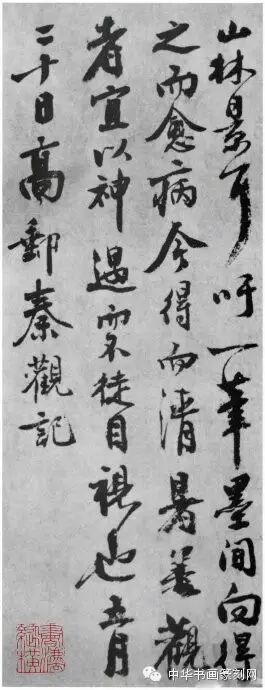 山林景耳吁一筆墨間向得
之而愈病今得而清暑善觀
者宜以神遇而不徒目視也五月
二十日高郵秦觀記
中华书画篆刻网